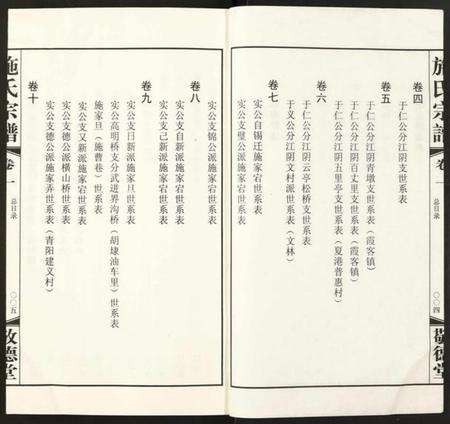 施氏宗譜
卷一
总目录
〇〇四
敬德堂
卷四
于仁公分江阴支世系表
卷五
于仁公分江阴青墩支世系表（霞客镇）
于仁公分江阴百丈里支世系表（霞客镇）
于仁公分江阴五里亭支世系表（夏港普惠村）
卷六
于义公分江阴云亭松桥支世系表
于义公分江阴文村派世系表（文林）
卷七
实公自锡迁施家宕世系表
实公支璧公派施家宕世系表
卷八
实公支锦公派施家宕世系表
实公支自新派施家宕世系表
实公支己新派施家宕世系表
卷九
实公支日新派施家旦世系表
实公高明桥支分武进界沟桥（胡埭油车里）世系表
施家旦（施曹巷）世系表
实公支又新派施家宕世系表
实公支德公派横山桥世系表
实公支德公派施家弄世系表（青阳建义村）
卷十
施氏宗譜
卷一
总目录
〇〇五
敬德堂